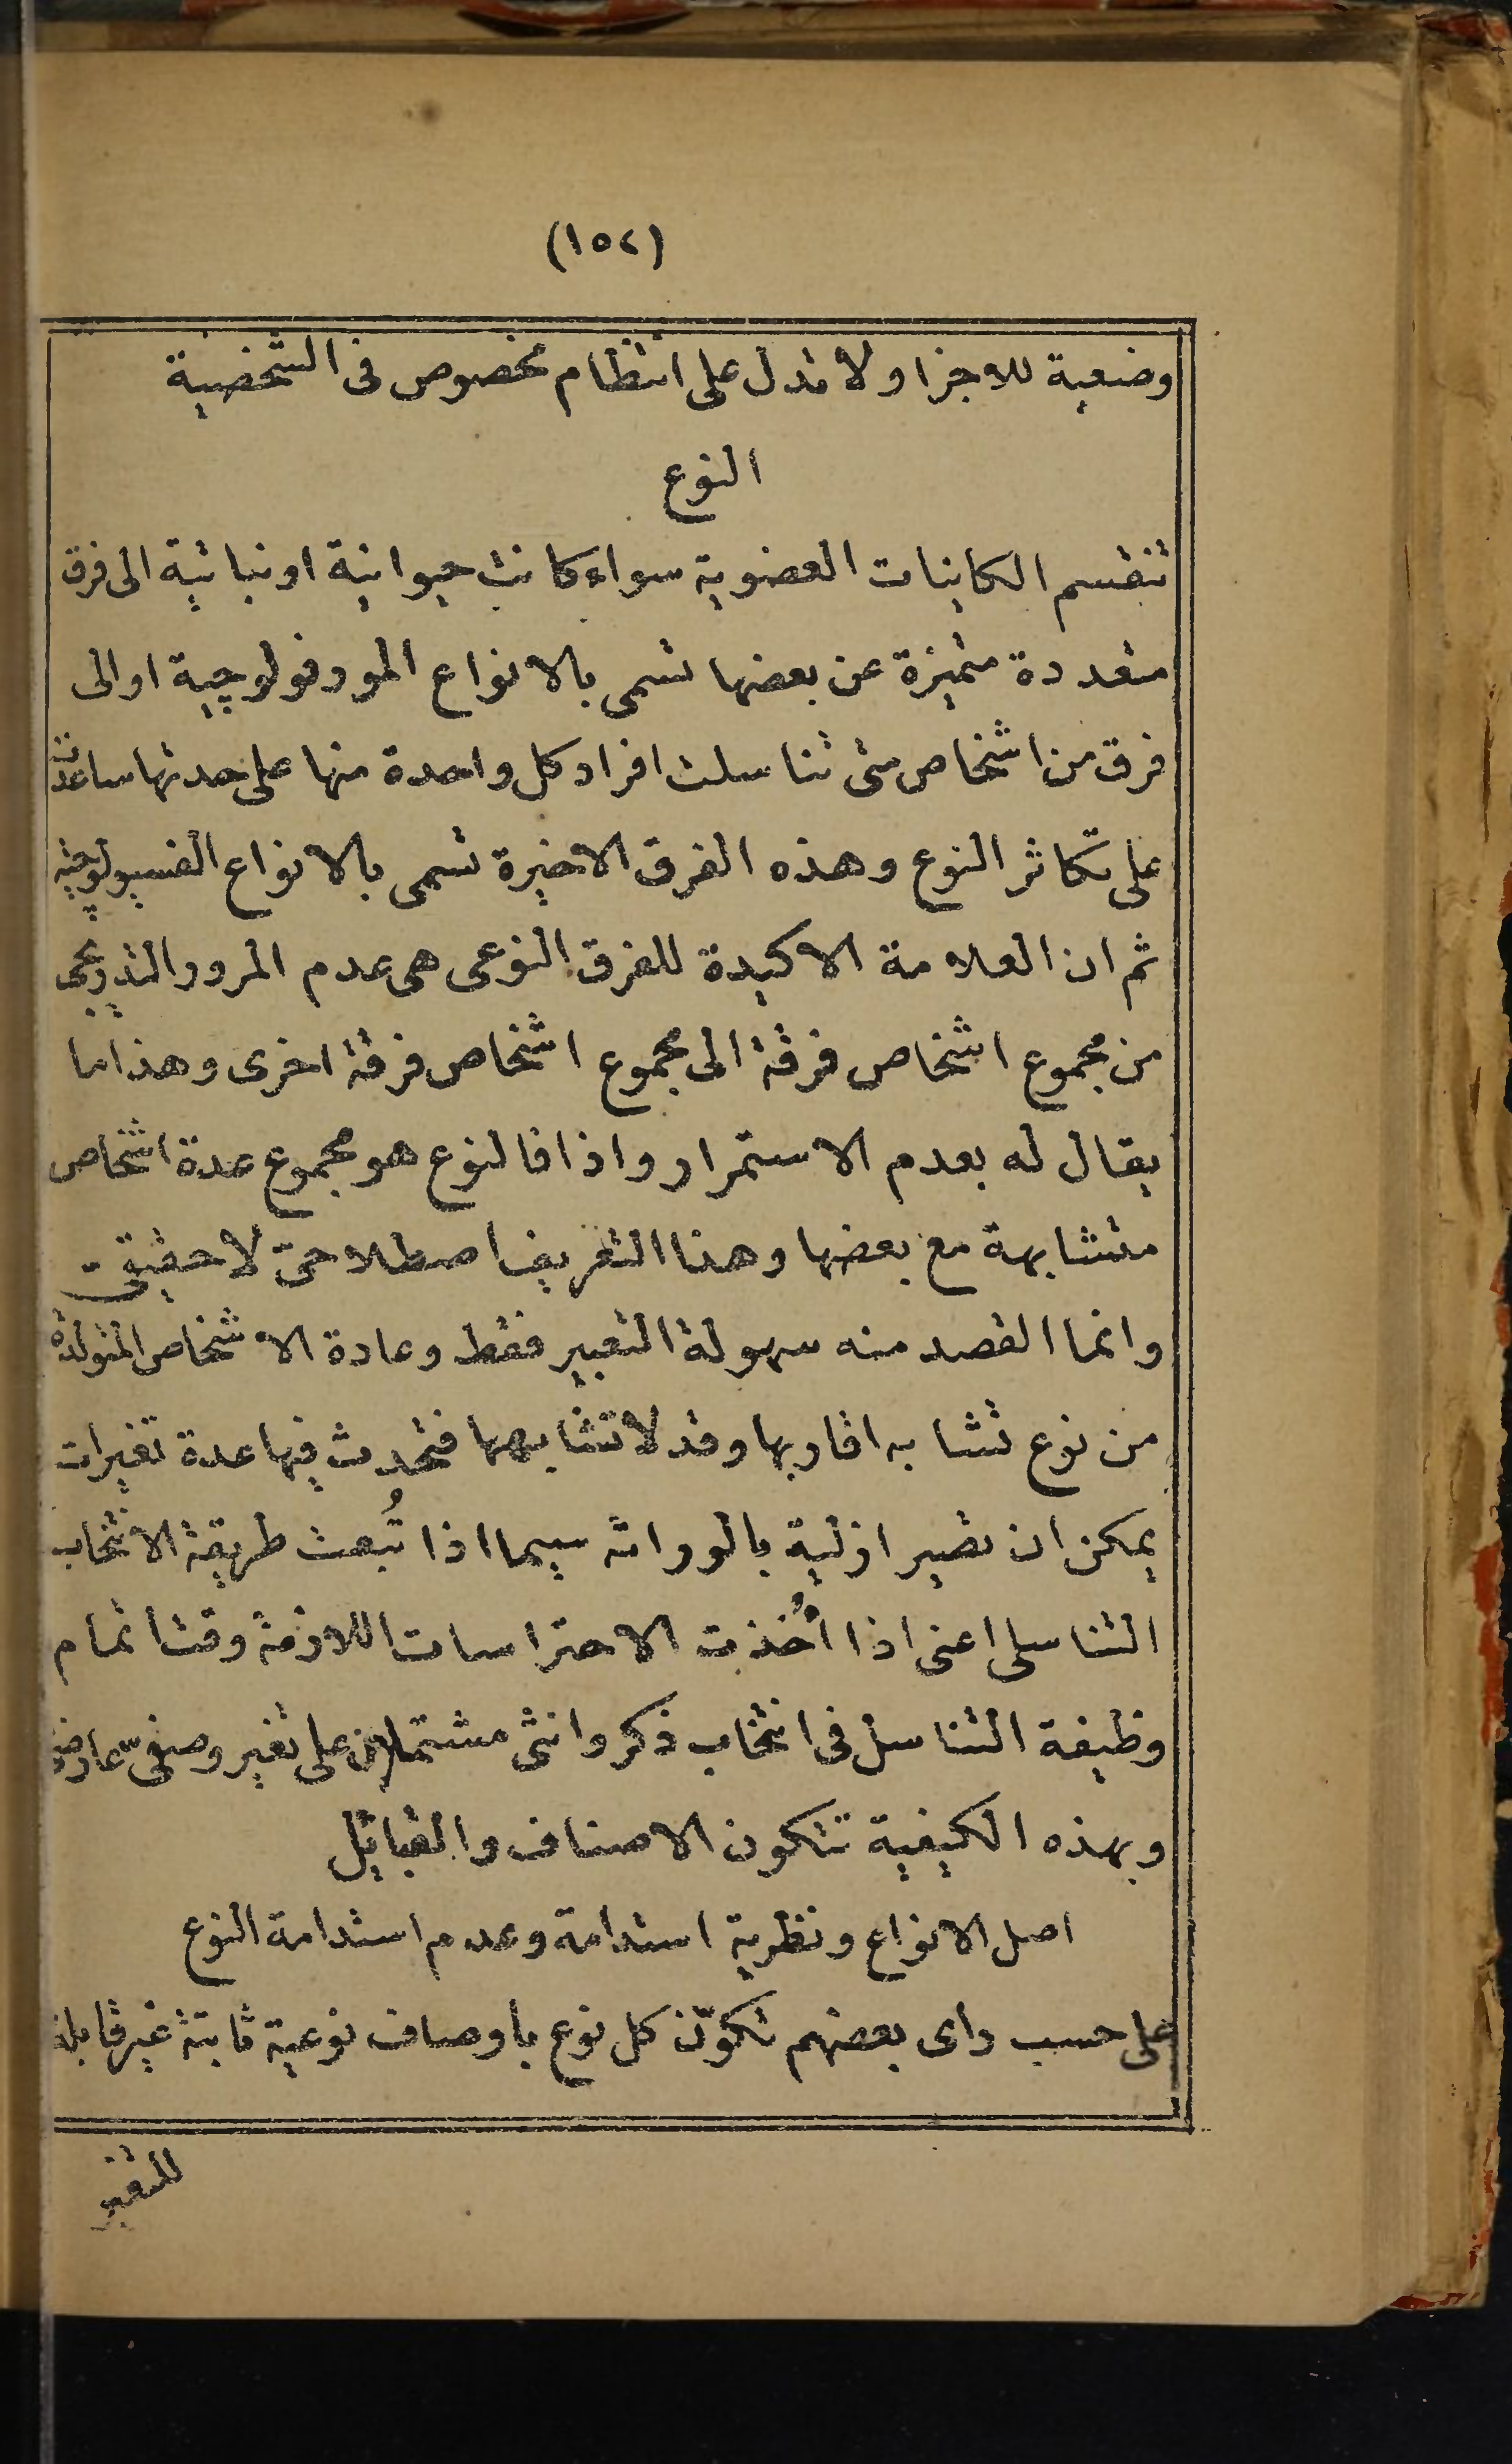 (١٥٢)
وضعية للاجزا ولا تدل على انتظام مخصوص فى الشخصية
النوع
تنقسم الكاينات العضوية سواء كانت حيوانية اونباتية الى فرق
متعددة متميزة عن بعضها تسمى بالانواع المورفولوجية اوالى
فرق من اشخاص متى تناسلت افراد كل واحدة منها على حدتها ساعدت
على تكاثر النوع وهذه الفرق الاخيرة تسمى بالانواع الفسيولوجية
ثم ان العلامة الاكيدة للفرق النوعى هى عدم المرور التدريجى
من مجموع اشخاص فرقة الى مجموع اشخاص فرقة اخرى وهذا ما
يقال له بعدم الاستمرار واذا فالنوع هو مجموع عدة اشخاص
متشابهة مع بعضها وهذا التعريف اصطلاحىّ لا حقيقى
وانما القصد منه سهولة التعبير فقط وعادة الاشخاص المتولدة
من نوع تشابه اقاربها وقد لا تشابهها فتحدث فيها عدة تغيرات
يمكن ان تصير ازلية بالوراثه سيما اذا تُبعت طريقة الانتخاب
التناسلى اعنى اذا أُخذت الاحتراسات اللازمة وقت اتمام
وظيفة التناسل فى انتخاب ذكر وانثى مشتملان على تغير وصفىّ عارضى
وبهذه الكيفية تتكون الاصناف والقبايل
اصل الانواع ونظرية استدامة وعدم استدامة النوع
على حسب راى بعضهم تكوّن كل نوع باوصاف نوعية ثابتة غير قابلة
للتغير